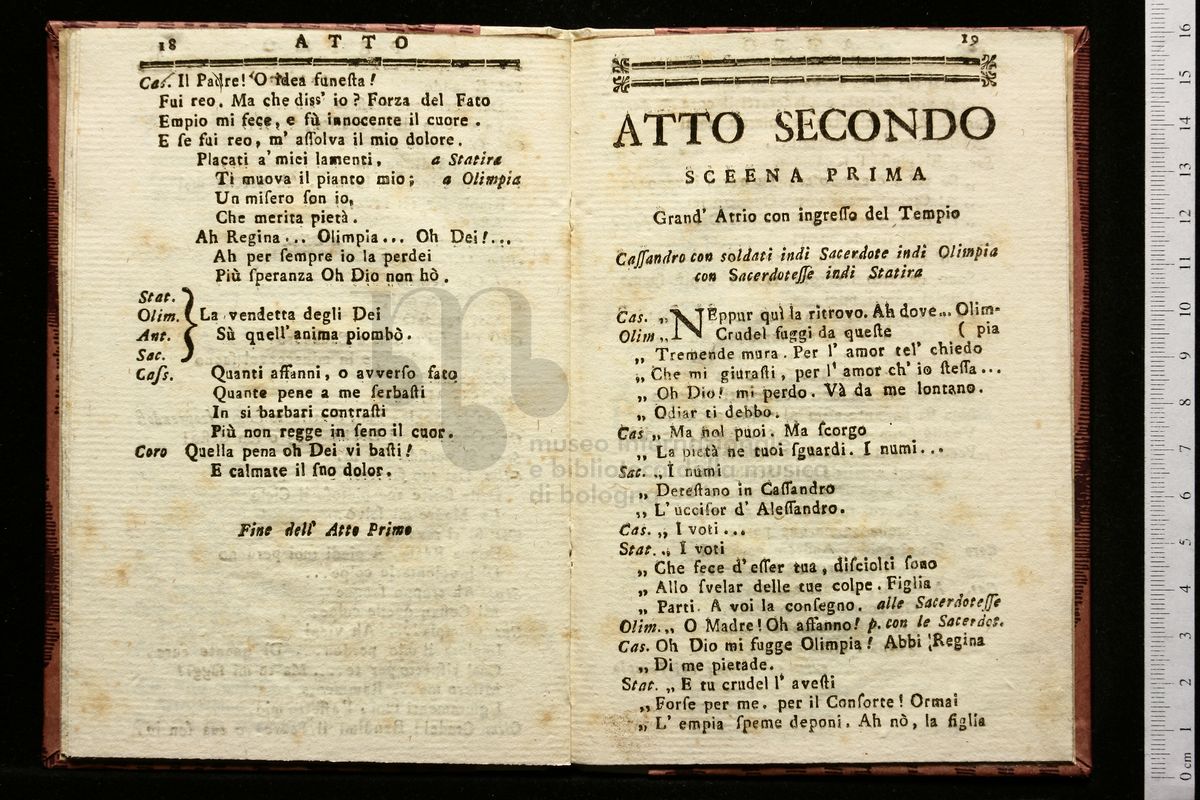 18 ATTO
Cas. Il Padre! O idea funeſta!
Fui reo. Ma che diss' io? Forza del Fato
Empio mi fece, e fù innocente il cuore.
E ſe fui reo, m' aſſolva il mio dolore.
Placati a' miei lamenti, a Statira
Ti muova il pianto mio; a Olimpia
Un miſero ſon io,
Che merita pietà.
Ah Regina... Olimpia... Oh Dei!...
Ah per ſempre io la perdei
Più ſperanza Oh Dio non hò.
Stat.
Olim. La vendetta degli Dei
Ant. Sù quell' anima piombò.
Sac.
Caſs. Quanti affanni, o avverſo fato
Quante pene a me ſerbaſti
In si barbari contraſti
Più non regge in ſeno il cuor.
Coro Quella pena oh Dei vi baſti!
E calmate il ſno dolor.
Fine dell' Atto Primo
19
ATTO SECONDO
SCEENA PRIMA
Grand' Atrio con ingreſſo del Tempio
Caſſandro con soldati indi Sacerdote indi Olimpia
con Sacerdoteſſe indi Statira
Cas. „ NEppur quì la ritrovo. Ah dove... Olim-
Olim „ Crudel fuggi da queſte ( pia
„ Tremende mura. Per l' amor tel' chiedo
„ Che mi giuraſti, per l' amor ch' io ſteſſa...
„ Oh Dio! mi perdo. Và da me lontano.
„ Odiar ti debbo.
Cas „ Ma nol puoi. Ma ſcorgo
„ La pietà ne tuoi ſguardi. I numi...
Sac. „ I numi
„ Deteſtano in Caſſandro
„ L' ucciſor d' Aleſſandro.
Cas. „ I voti...
Stat. „ I voti
„ Che fece d' eſſer tua, diſciolti ſono
„ Allo ſvelar delle tue colpe. Figlia
„ Parti. A voi la conſegno. alle Sacerdoteſſe
Olim. „ O Madre! Oh affanno! p. con le Sacerdot.
Cas. Oh Dio mi fugge Olimpia! Abbi Regina
„ Di me pietade.
Stat. „ E tu crudel l' aveſti
„ Forſe per me, per il Conſorte! Ormai
„ L' empia ſpeme deponi. Ah nò, la figlia
museo internazionale
e biblioteca della musica
di bologna
16
15
14
13
12
11
10
9
8
7
6
5
4
3
2
1
0 cm